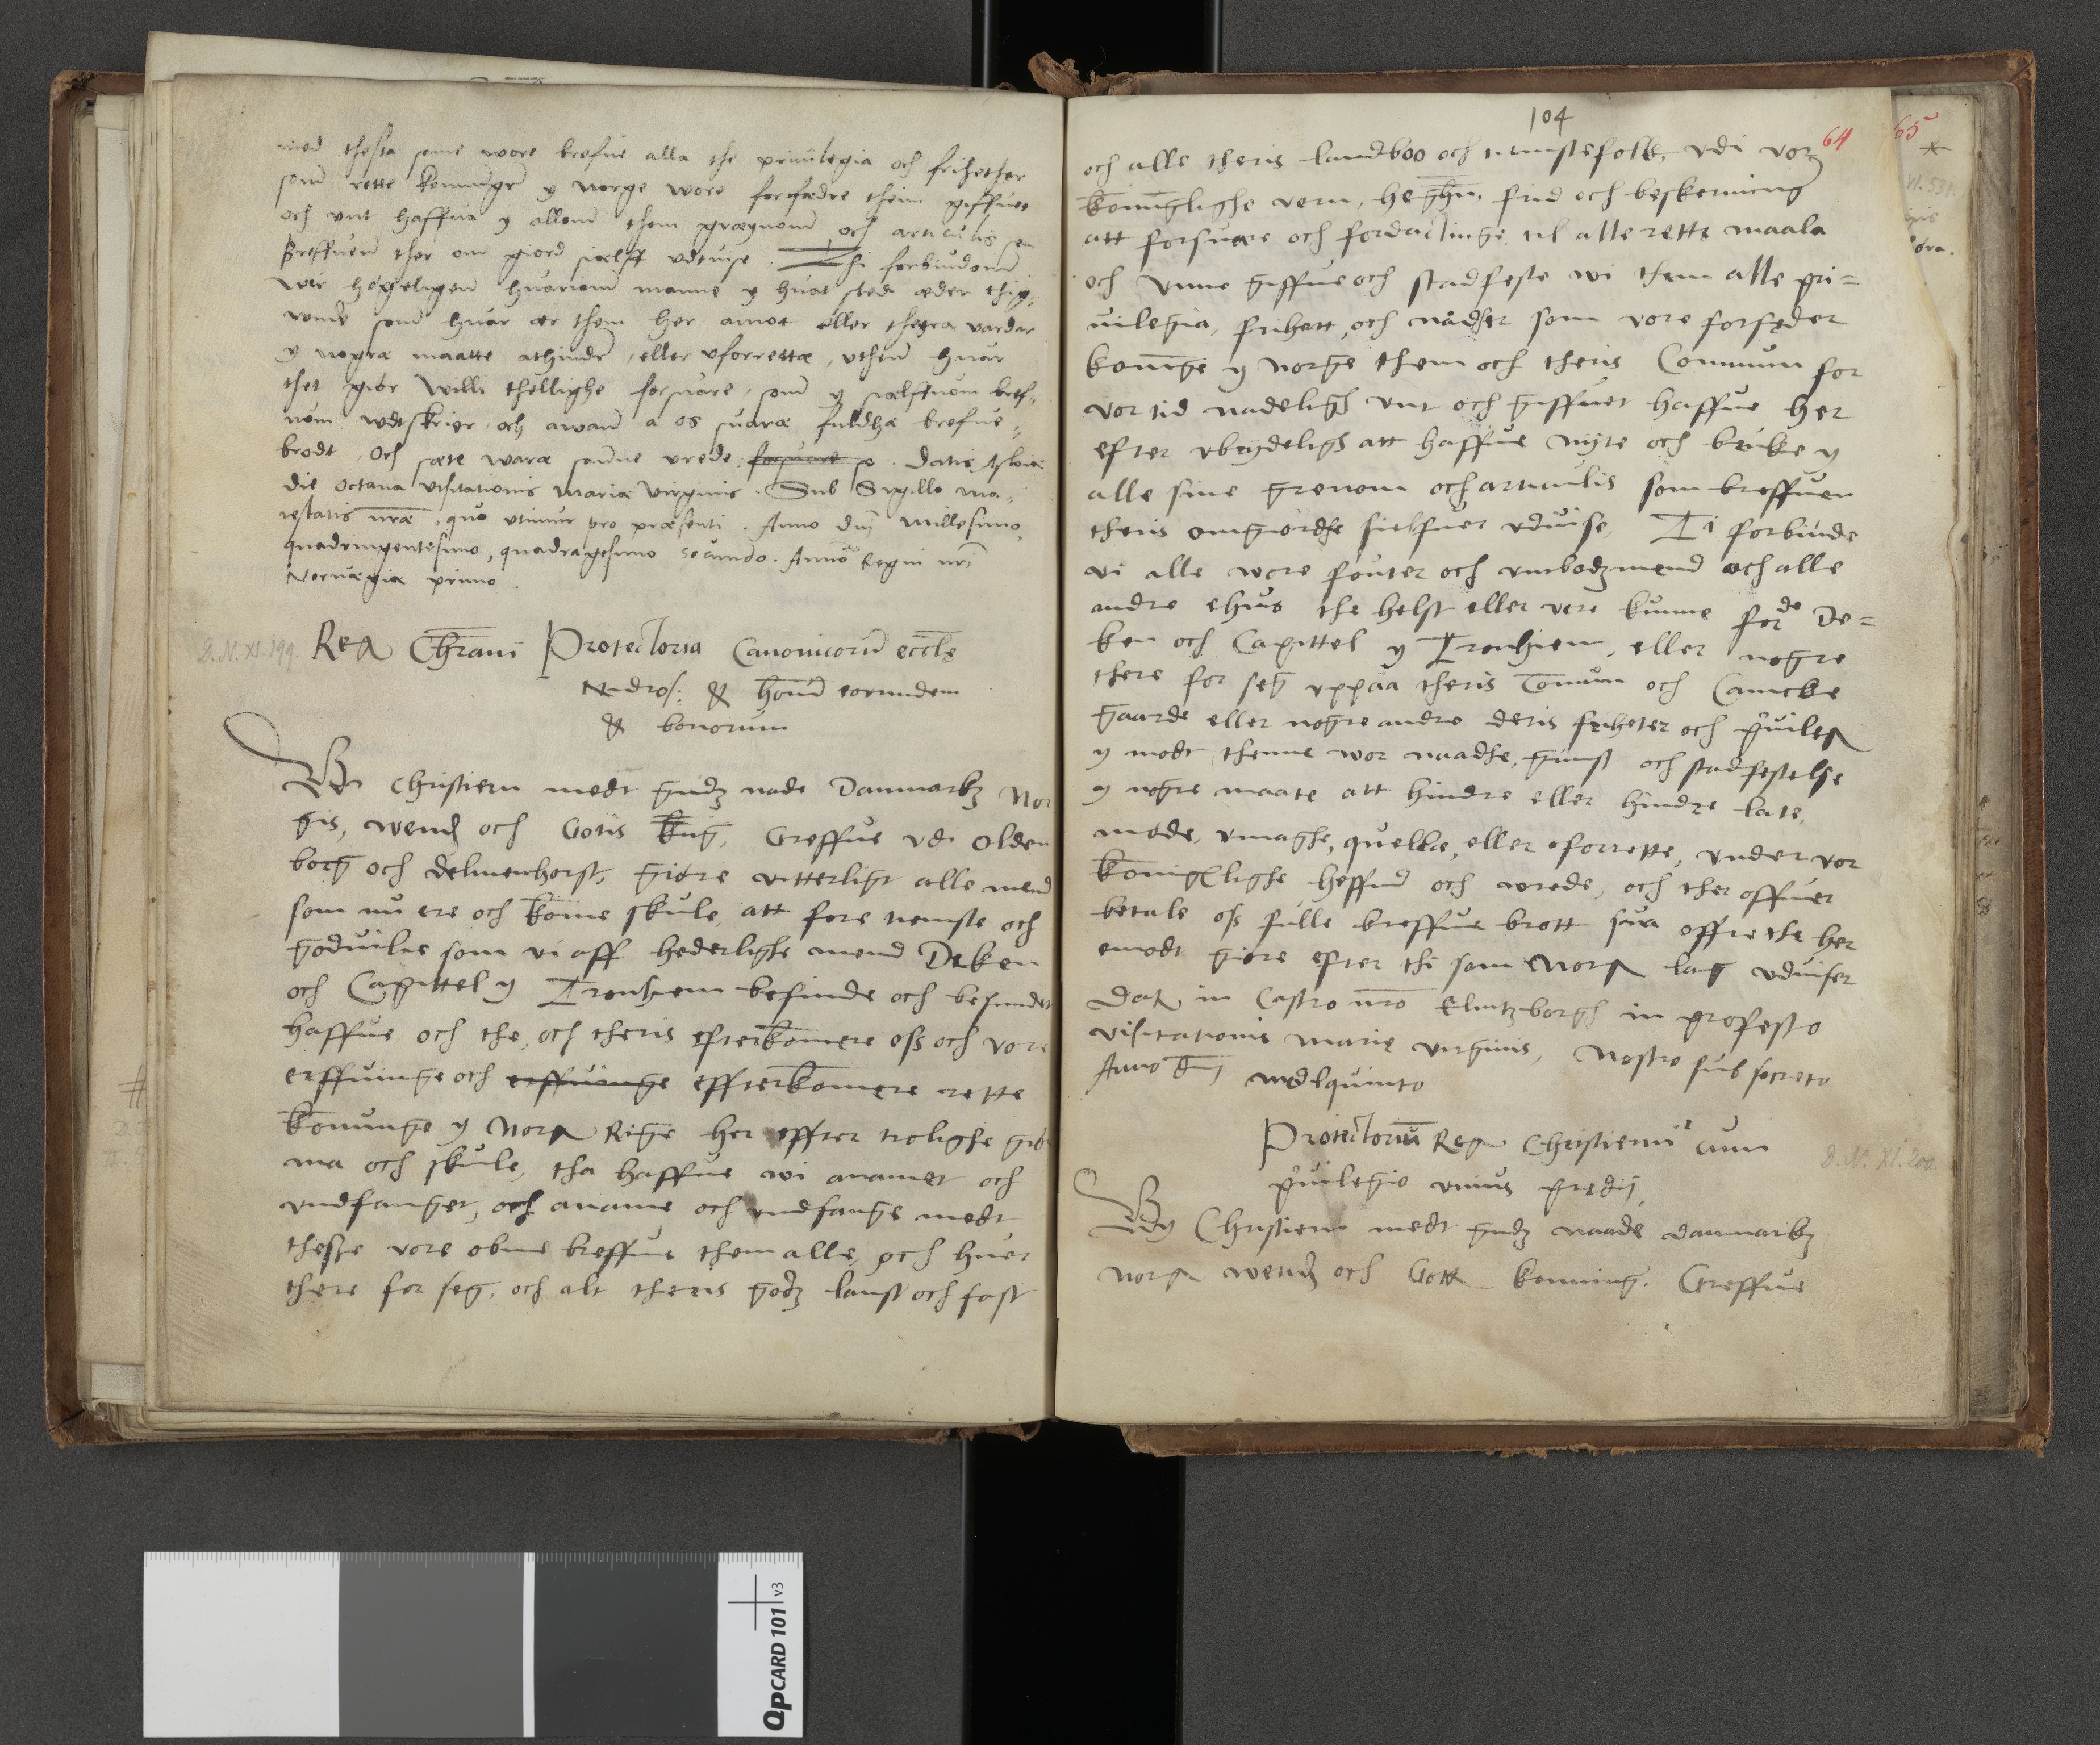 med thessa some wore brefue alla the priuilegia och frihether
som rette konunger y norge wore forfædre theim giffuet
och vnt haffua y allom them grægnom och articulis sem
breffuen ther om giord sælff vdtuise. Thi forbiudom
wir høgeligen huariom manne y huat sted æder thig,
som huar er them her amot eller theyra vardar
y nogra maatte athindre, eller vforretta, vthen huar
thet giør willi thellighe forsuare, som y sælfuom bref=
uom wdtskrifr, och awan a os suara fuldha brefue=
brodt, Och sæte wara sanne vrede, forsuare. Datis Asloiæ
die octaua visitationis Mariæ virginis. Sub Sigillo ma=
iestatis nræ, quo vtimur pro præsenti. Anno dnj Millesimo,
quadringentesimo, quadragesimo secundo. Anno Regni nri
Noruægiæ primo.
D.N. XI. 199.
Reg Chrani Protectoria Canonicoru eccle
Nidros: & homi eorundem
& bonorum
Wy Christiern medt gudz nade Danmarkz Nor
gis, wend och Gotis kng, Greffue vdi Olden
borg och delmenhorst, giøre vitterligt alle mend
som nu ere och kome skule, att fore tienste och
goduilie som vi aff hederlighe mend Deken
och Capittel y Tronhiem befinde och befundet
haffue och the, och theris efterkomere oss och vore
erffuinge och erffuinge effterkomere rette
konunge y Norg Rige her effter trolighe giø
ma och skule, tha haffue wi anamet och
vndfanget, och aname och vndfange medt
thesse vore obne breffue them alle och huer
there for seg, och alt theris godz laust och fast
104
64
65
och alle theris landboo och tienistefolk, vdi vor
konunglighe vern, heghn, frid och beskerming
att forsuare och fordactinge til alle rette maala
och vnne giffue och stadfeste wi them alle pri=
uilegia, frihett, och nådher som vore forfeder
konunge y Norge them och theris Commun for
vor tid nadeligh vnt och giffuet haffue her
efter vbrydeligh att haffue nyte och bruke y
alle sine grenom och articulis som breffuen
theris omgiordhe sielfuer vduise, Ti forbinde
vi alle wore fouter och vmbodzmend och alle
andre ehuo the helst eller vere kunne forde De=
ken och Capittel y Tronhiem, eller nogre
there for seg vppaa theris Comun och Canicke
gaarde eller nogre andre deris friheter och puileg
y modt thenne wor naadhe, gunst och stadfestelse
y nogre maate att hindre eller hindre late,
møde, vmaghe, quellæ, eller oforrette, vnder vor
koniglighe heffnd och wrede, och ther offuer
betale oss fulle breffue brott saa offte the her
emodt giøre efter thi som Norg lag vduiser
Dat in Castro nro Elintzborgh in profesto
visitationis marie virginis, Nostro sub secreto
Anno dnj mdlquinto
Protectoriu Reg Christierni cum
puilegio vnius predij
D.N. XI. 200.
Wy Christiern medt gudz naade danmarkz
Norg wend och Gott konning. Greffue